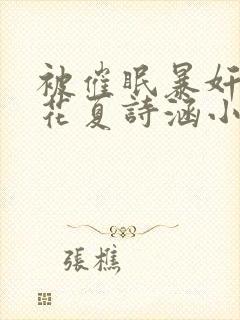 被催眠暴奸
花夏詩涵小
張樵